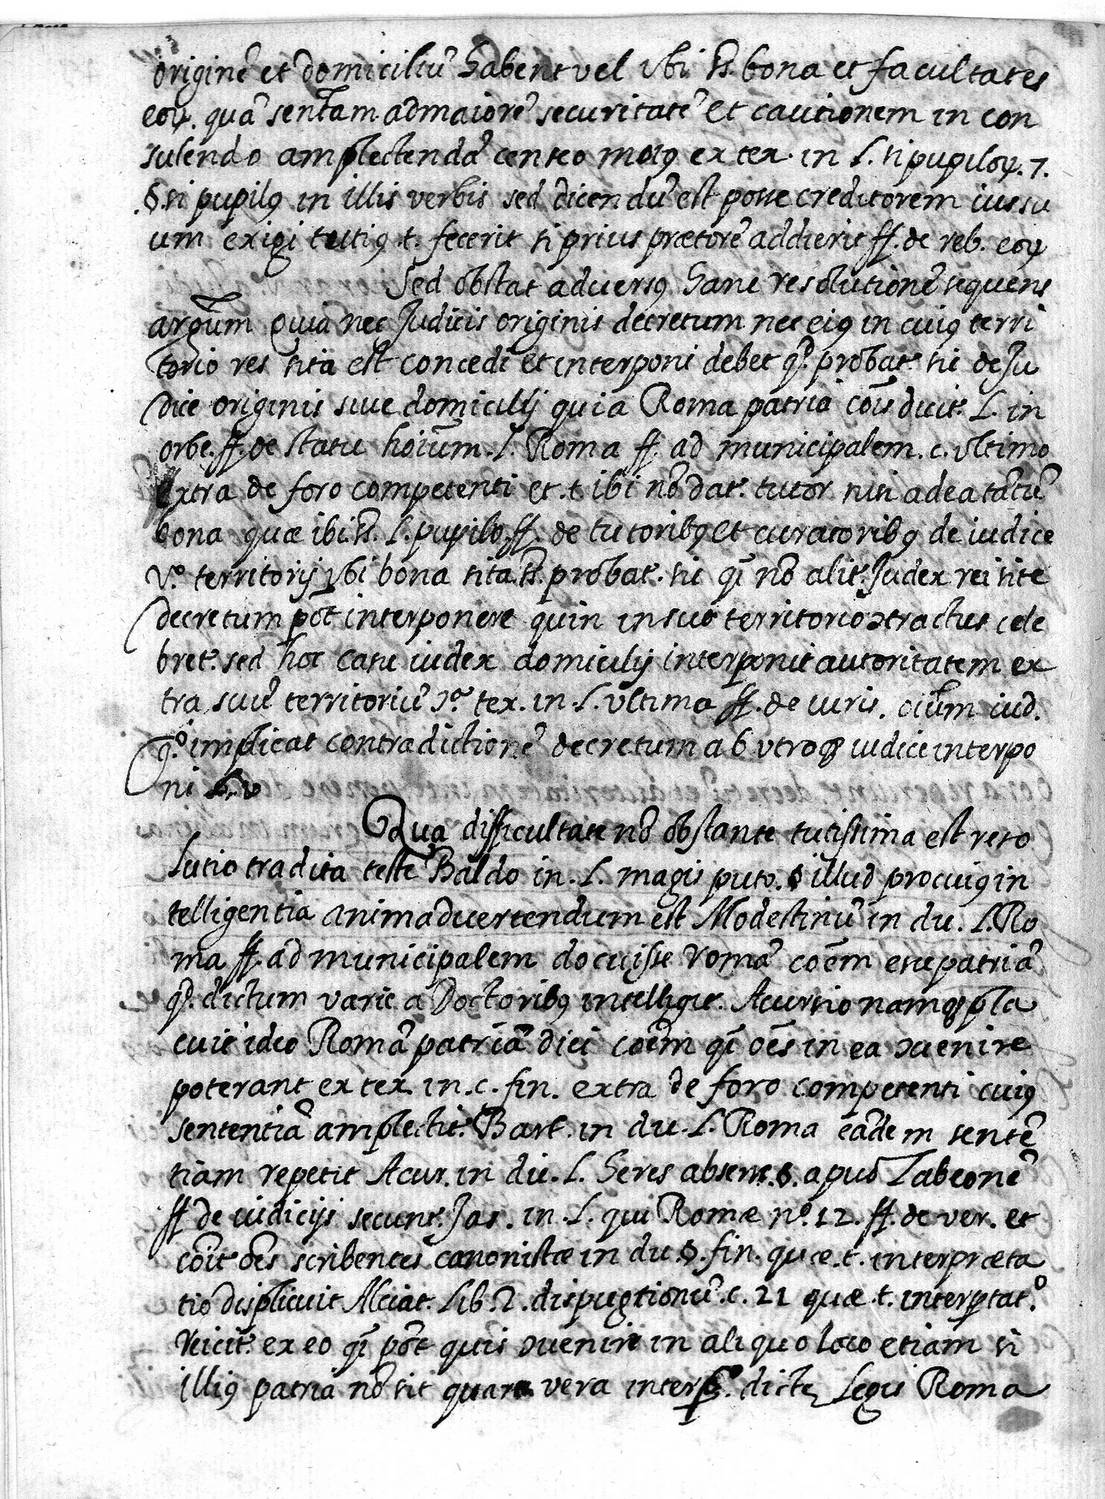 originē et domiciliū habent vel vbi st̄. bona et facultates
eoꝝ. quā sent̄am ad maiorē securitatē et cautionem in con
sulendo amplectendā censeo motꝰ ex tex. in l. si pupiloꝝ. 7.
.§. si pupilꝰ in illis verbis sed dicendū est posse creditorem iussu
um exigi fecerit si prius prætorē addierit ff. de reb. eoꝝ
Sed obstat adversꝰ hanc resolutionē sequens
argūm Quia nec Judicis originis decretum nec eiꝰ in cuiꝰ terri
torio res sita est concedi et interponi debet qd̄. probat.^r sic de Ju
dice originis sive domicilij quia Roma patria cōis dicit.^r L. in
orbe. ff. de statu hoīum. l. Roma ff. ad municipalem. c. vltimo
extra de foro competenti et .t. ibi nō dat.^r tutor nisi ad ea tātū
bona quæ ibi st̄. l. pupilo. ff. de tutoribꝰ et curatoribꝰ de iudice
v.º territorij vbi bona sita st̄. probat.^r sic qi̅ nō alit.^r Judex rei site
decretum pōt interponere quin in suo territorio ↄtractus cele
bret.^r sed hoc casu iudex domicilij interponit autoritatem ex
tra suū territoriū ↄ.ª tex. in. l. vltima ff. de iuris. oīum iud.
qº. implicat contradictionē decretum ab vtroqꝫ iudice interpo
ni
Qua difficultate nō obstante tutissima est reso
lutio tradita teste Baldo in. l. magis puto. § illud pro cuiꝰ in
telligentia animadvertendum est Modestinū in du. l. Ro
ma ff. ad municipalem docuisse Romā coēm esse patriā
qd̄. dictum varie a Doctoribꝰ intelligit.^r Acursio namqꝫ pla
cuit ideo Romā patriā dici coēm qi̅ oēs in ea ↄvenire
poterant ex tex in. c. fin. extra de foro competenti cuiꝰ
sententiā amplectit.^r Bart. in du. l. Roma eādem sentē
tiam repetit Acur. in du. l. heres absens. §. apud Labeonē
ff de iudicijs secunt.^r Jas. in. l. qui Romæ nº. 12. ff. de ver. et
cōit.^r oēs scribentes canonistæ in du §. fin. quæ. t. interpræta
tio displicuit Alciat. Lib. 2. dispugtionū. c. 21 quæ t. interp̄tat.º
reicit.^r ex eo qi̅ pōt quis ↄvenire in aliquo loco etiam si
illiꝰ patria nō sit quare vera interp̄º. dictę Legis Roma